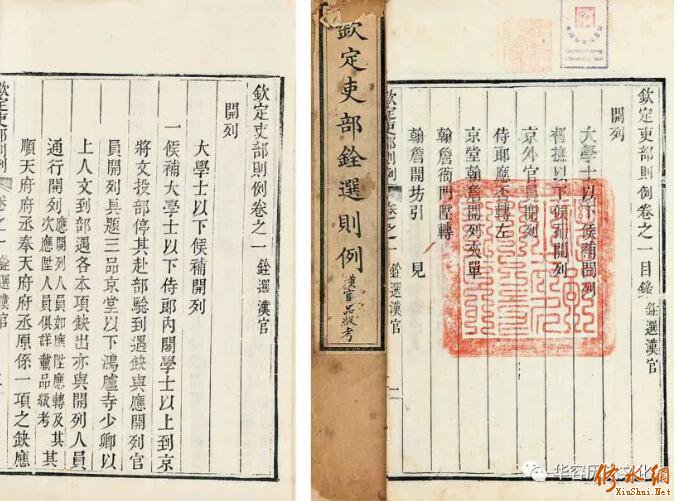 欽定吏部則例卷之一目錄 銓選漢官
開列
大學士以下候補開列
督撫以下候補開列
京外官員開列
侍郎應否轉左
京堂翰詹開列夾單
翰詹衙門陞轉
翰詹開坊引 見
欽定吏部則例 卷之一 銓選漢官 一
欽定吏部銓選則例 漢官品級考
欽定吏部則例卷之一
開列
大學士以下候補開列
一候補大學士以下侍郎內閣學士以上到京
將文投部停其赴部驗到遇缺與應開列官
員開列具題三品京堂以下鴻臚寺少卿以
上人文到部遇各本項缺出亦與開列人員
通行開列 應開列人員如應陞應轉及其 次應陞人員俱詳載品級考 其
順天府府丞奉天府府丞原係一項之缺應
欽定吏部則例 卷之一 銓選漢官
修水網
XiuShui.Net